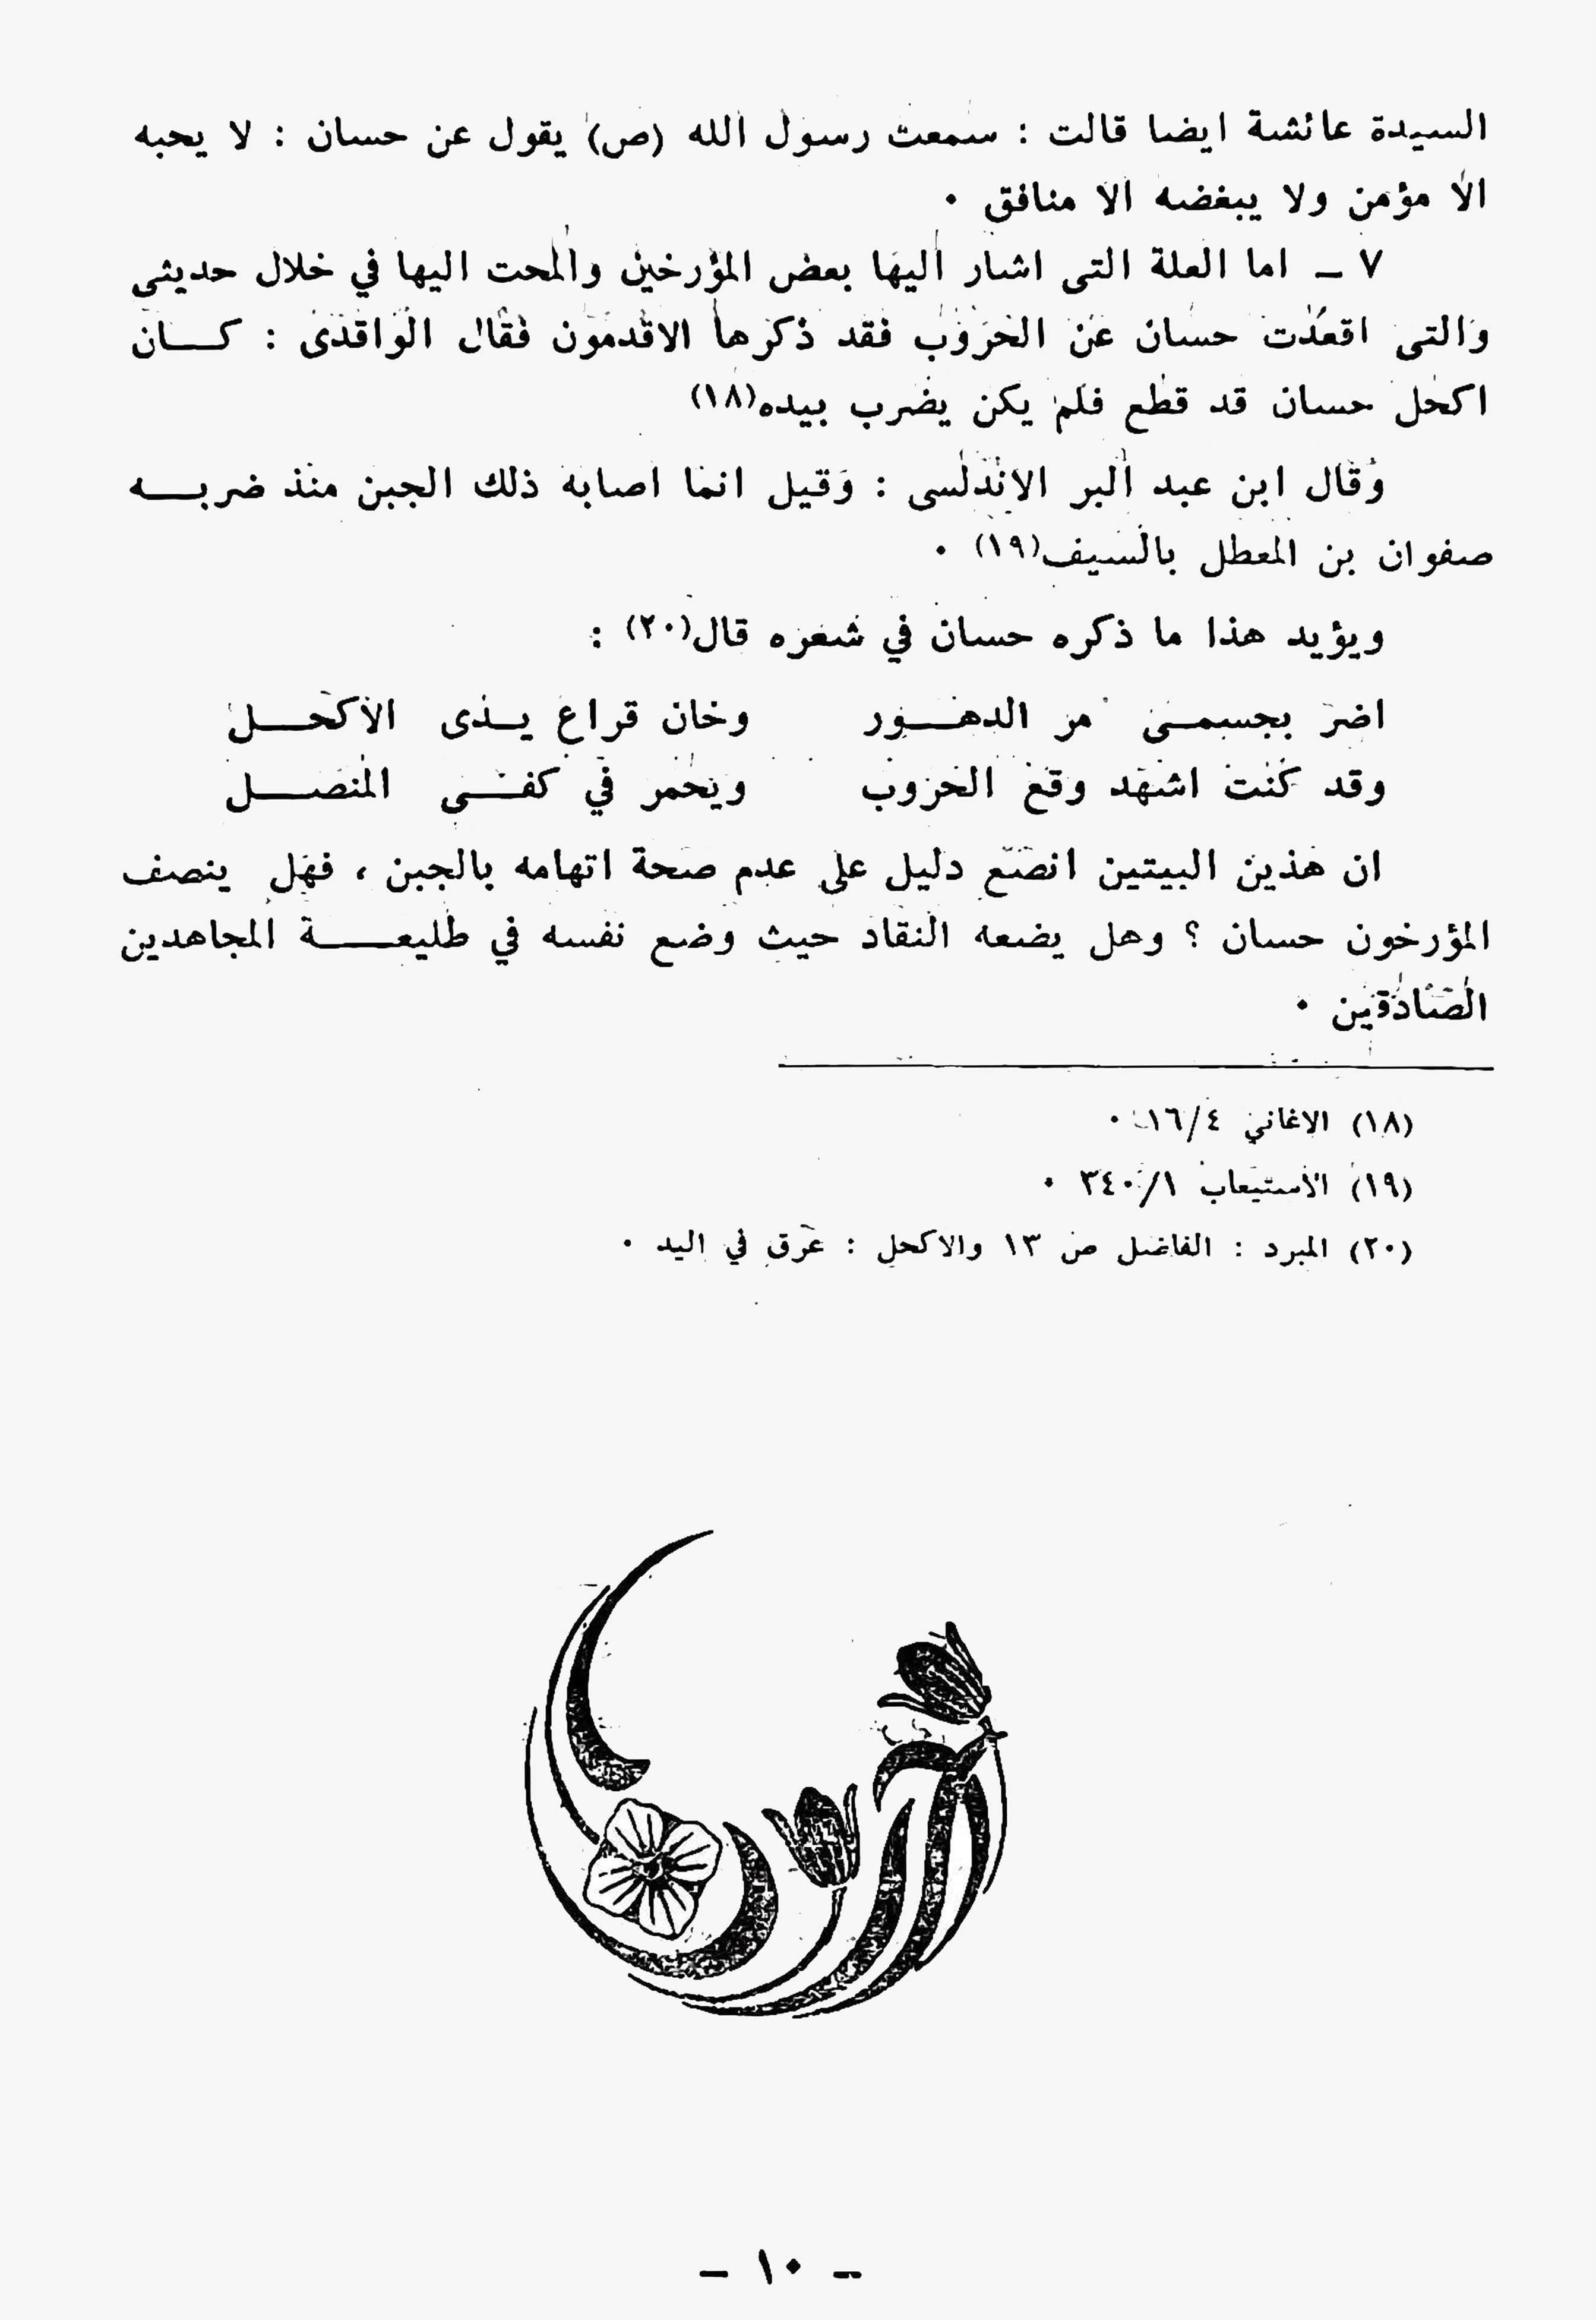 السيدة عائشة ايضا قالت : سمعت رسول الله (ص) يقول عن حسان : لا يحبه
الا مؤمن ولا يبغضه الا منافق ٠
٧ ــ اما العلة التى اشار اليها بعض المؤرخين والمحت اليها في خلال حديثى
والتى اقعدت حسان عن الحروب فقد ذكرها الاقدمون فقال الواقدى : كـــان
اكحل حسان قد قطع فلم يكن يضرب بيده(١٨)
وقال ابن عبد البر الاندلسى : وقيل انما اصابه ذلك الجبن منذ ضربـــه
صفوان بن المعطل بالسيف(١٩) ٠
ويؤيد هذا ما ذكره حسان في شعره قال(٢٠) :
اضر بجسمـى مر الدهـــور وخان قراع يـدى الاكحـــل
وقد كنت اشهد وقع الحروب ويحمر في كفــى المنصـــل
ان هذين البيتين انصع دليل على عدم صحة اتهامه بالجبن ، فهل ينصف
المؤرخون حسان ؟ وهل يضعه النقاد حيث وضع نفسه في طليعـــة المجاهدين
الصادقين ٠
(١٨) الاغاني ١٦/٤ ٠
(١٩) الاستيعاب ٣٤٠/١ ٠
(٢٠) المبرد : الفاضل ص ١٣ والاكحل : عرق في اليد ٠
ــ ١٠ ــ